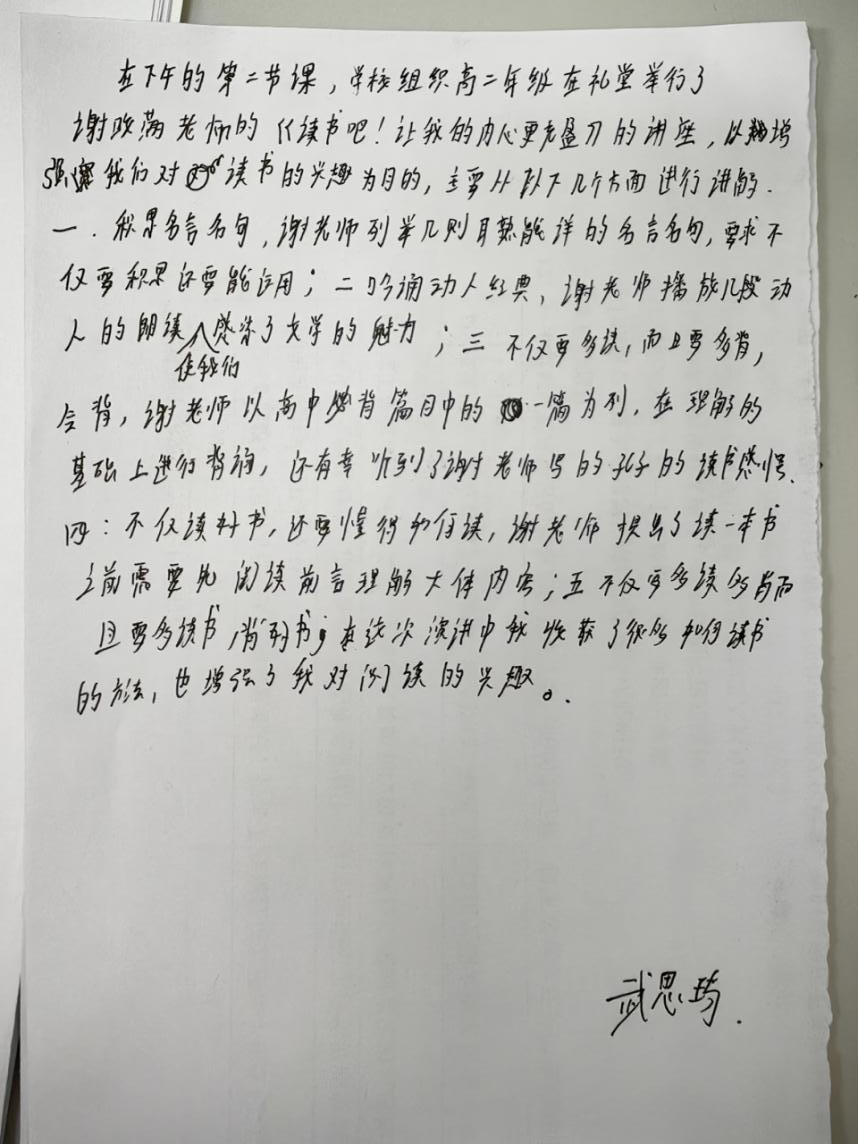 在下午的第二节课，学校组织高二年级在礼堂举行了
谢政满老师的《读书吧！让我的内心更充盈》的讲座，以增
强我们对读书的兴趣为目的，主要从以下几个方面进行讲解.
一．积累名言名句，谢老师列举几则耳熟能详的名言名句，要求不
仅要积累还要能运用；二吟诵动人经典，谢老师播放几段动
人的朗读使我们感染了文学的魅力；三 不仅要多读，而且要多背，
会背，谢老师以高中必背篇目中的一篇为列，在理解的
基础上进行背诵，还有幸听到了谢老师写的孔子的读书感悟.
四：不仅读好书，还要懂得如何读，谢老师提出了读一本书
之前需要先阅读前言理解大体内容；五不仅要多读多背而
且要多读书，背到书；在这次演讲中我收获了很多如何读书
的方法，也增强了我对阅读的兴趣。.
武思